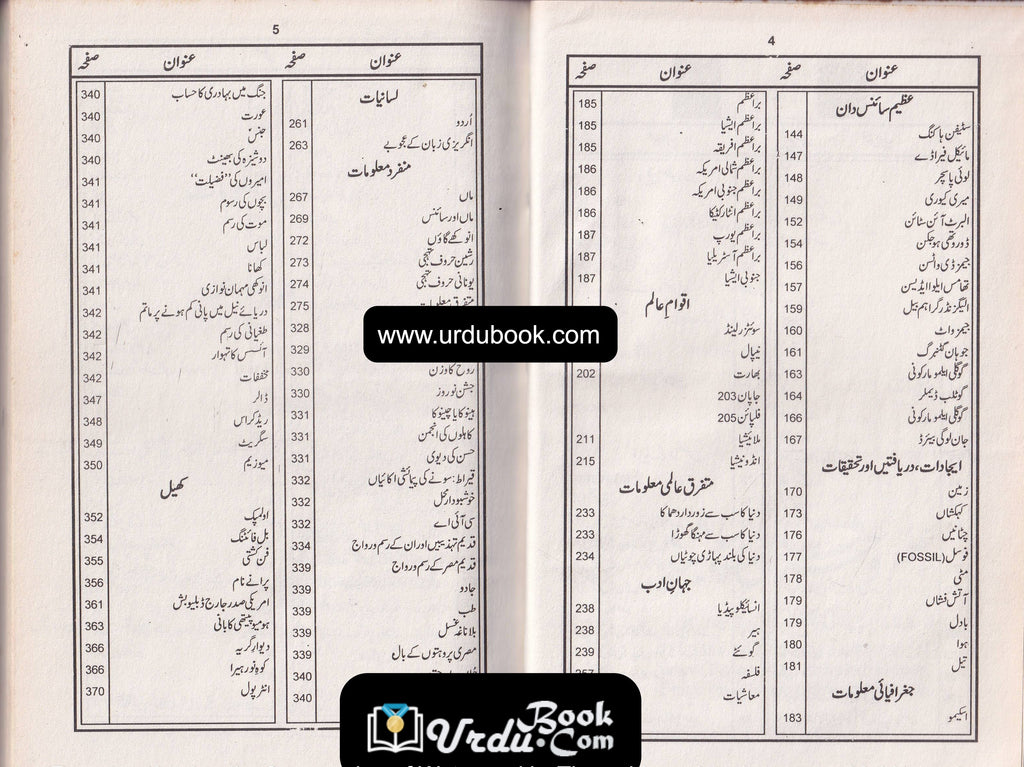 4
عنوان صفحہ
عظیم سائنس دان
سٹیفن ہاکنگ 144
مائیکل فیراڈے 147
لوئی پاسچر 148
میری کیوری 149
البرٹ آئن سٹائن 152
ڈوروتھی ہوجکن 154
جیمز ڈی واٹسن 156
تھامس ایلوا ایڈیسن 157
الیگزنڈر گراہم بیل 159
جیمز واٹ 160
جوہان گٹنبرگ 161
گوگلی ایلمو مارکونی 163
گوٹلب ڈیملر 164
گوگلی ایلمو مارکونی 166
جان لوگی بیئرڈ 167
ایجادات، دریافتیں اور تحقیقات
زمین 170
کہکشاں 173
چٹانیں 176
فوسل (FOSSIL) 177
مٹی 178
آتش فشاں 179
بادل 179
ہوا 180
تیل 181
جغرافیائی معلومات
اسکیمو 183
عنوان صفحہ
براعظم 185
براعظم ایشیا 185
براعظم افریقہ 185
براعظم شمالی امریکہ 186
براعظم جنوبی امریکہ 186
براعظم انٹارکٹیکا 186
براعظم یورپ 187
براعظم آسٹریلیا 187
جنوبی ایشیا 187
اقوام عالم
سوئٹزرلینڈ
نیپال
بھارت 202
جاپان 203
فلپائن 205
ملائیشیا 211
انڈونیشیا 215
متفرق عالمی معلومات
دنیا کا سب سے زوردار دھماکا 233
دنیا کا سب سے مہنگا گھوڑا 233
دنیا کی بلند پہاڑی چوٹیاں 234
جہانِ ادب
انسائیکلوپیڈیا 238
ہیر 238
گوئٹے 239
فلسفہ 257
معاشیات
5
عنوان صفحہ
لسانیات
اُردو 261
انگریزی زبان کے عجوبے 263
منفرد معلومات
ماں 267
ماں اور سائنس 269
انوکھے گاؤں 272
رشین حروف تہجی 273
یونانی حروف تہجی 274
متفرق معلومات 275
328
329
روح کا وزن 330
جشن نوروز 330
ہینوکا یا چینوکا 331
کاہلوں کی انجمن 331
حسن کی دیوی 331
قیراط: سونے کی پیمائشی اکائیاں 332
خوشبودار تل 332
سی آئی اے 332
قدیم تہذیبیں اور ان کے رسم و رواج 334
قدیم مصر کے رسم و رواج 339
جادو 339
طب 339
بلاناغہ غسل 339
مصری پروہتوں کے بال 339
340
340
عنوان صفحہ
جنگ میں بہادری کا حساب 340
عورت 340
جنس 340
دوشیزہ کی بھینٹ 340
امیروں کی "فضیلت" 341
بچوں کی رسوم 341
موت کی رسم 341
لباس 341
کھانا 341
انوکھی مہمان نوازی 341
دریائے نیل میں پانی کم ہونے پر ماتم 342
طغیانی کی رسم 342
آئسس کا تہوار 342
مخففات 342
ڈالر 347
ریڈ کراس 348
سگریٹ 349
میوزیم 350
کھیل
اولمپک 352
بل فائٹنگ 354
فن کشتی 355
پرانے نام 356
امریکی صدر جارج ڈبلیو بش 361
ہومیوپیتھی کا بانی 363
دیوار گریہ 366
کوہ نور ہیرا 366
انٹرپول 370
www.urdubook.com
UrduBook.Com